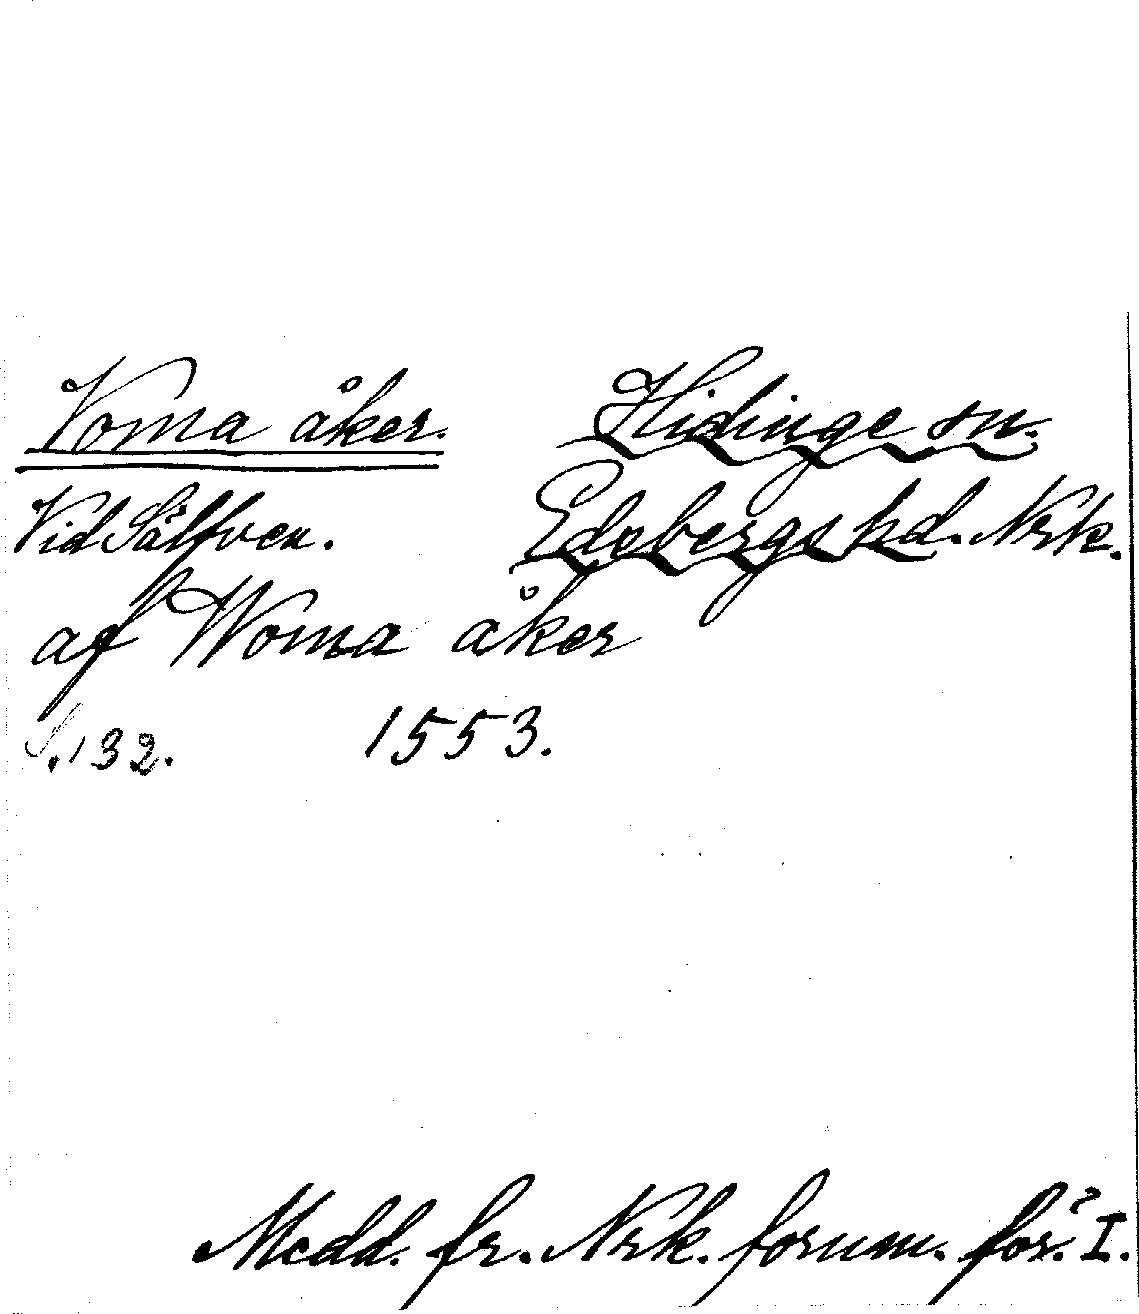 Voma åker. Hidinge sn.
Vid Sälfven. Edsbergs hd. Nrk.
af Woma åker
S. 132. 1553.
Medd. fr. Nrk. fornm. för. I.